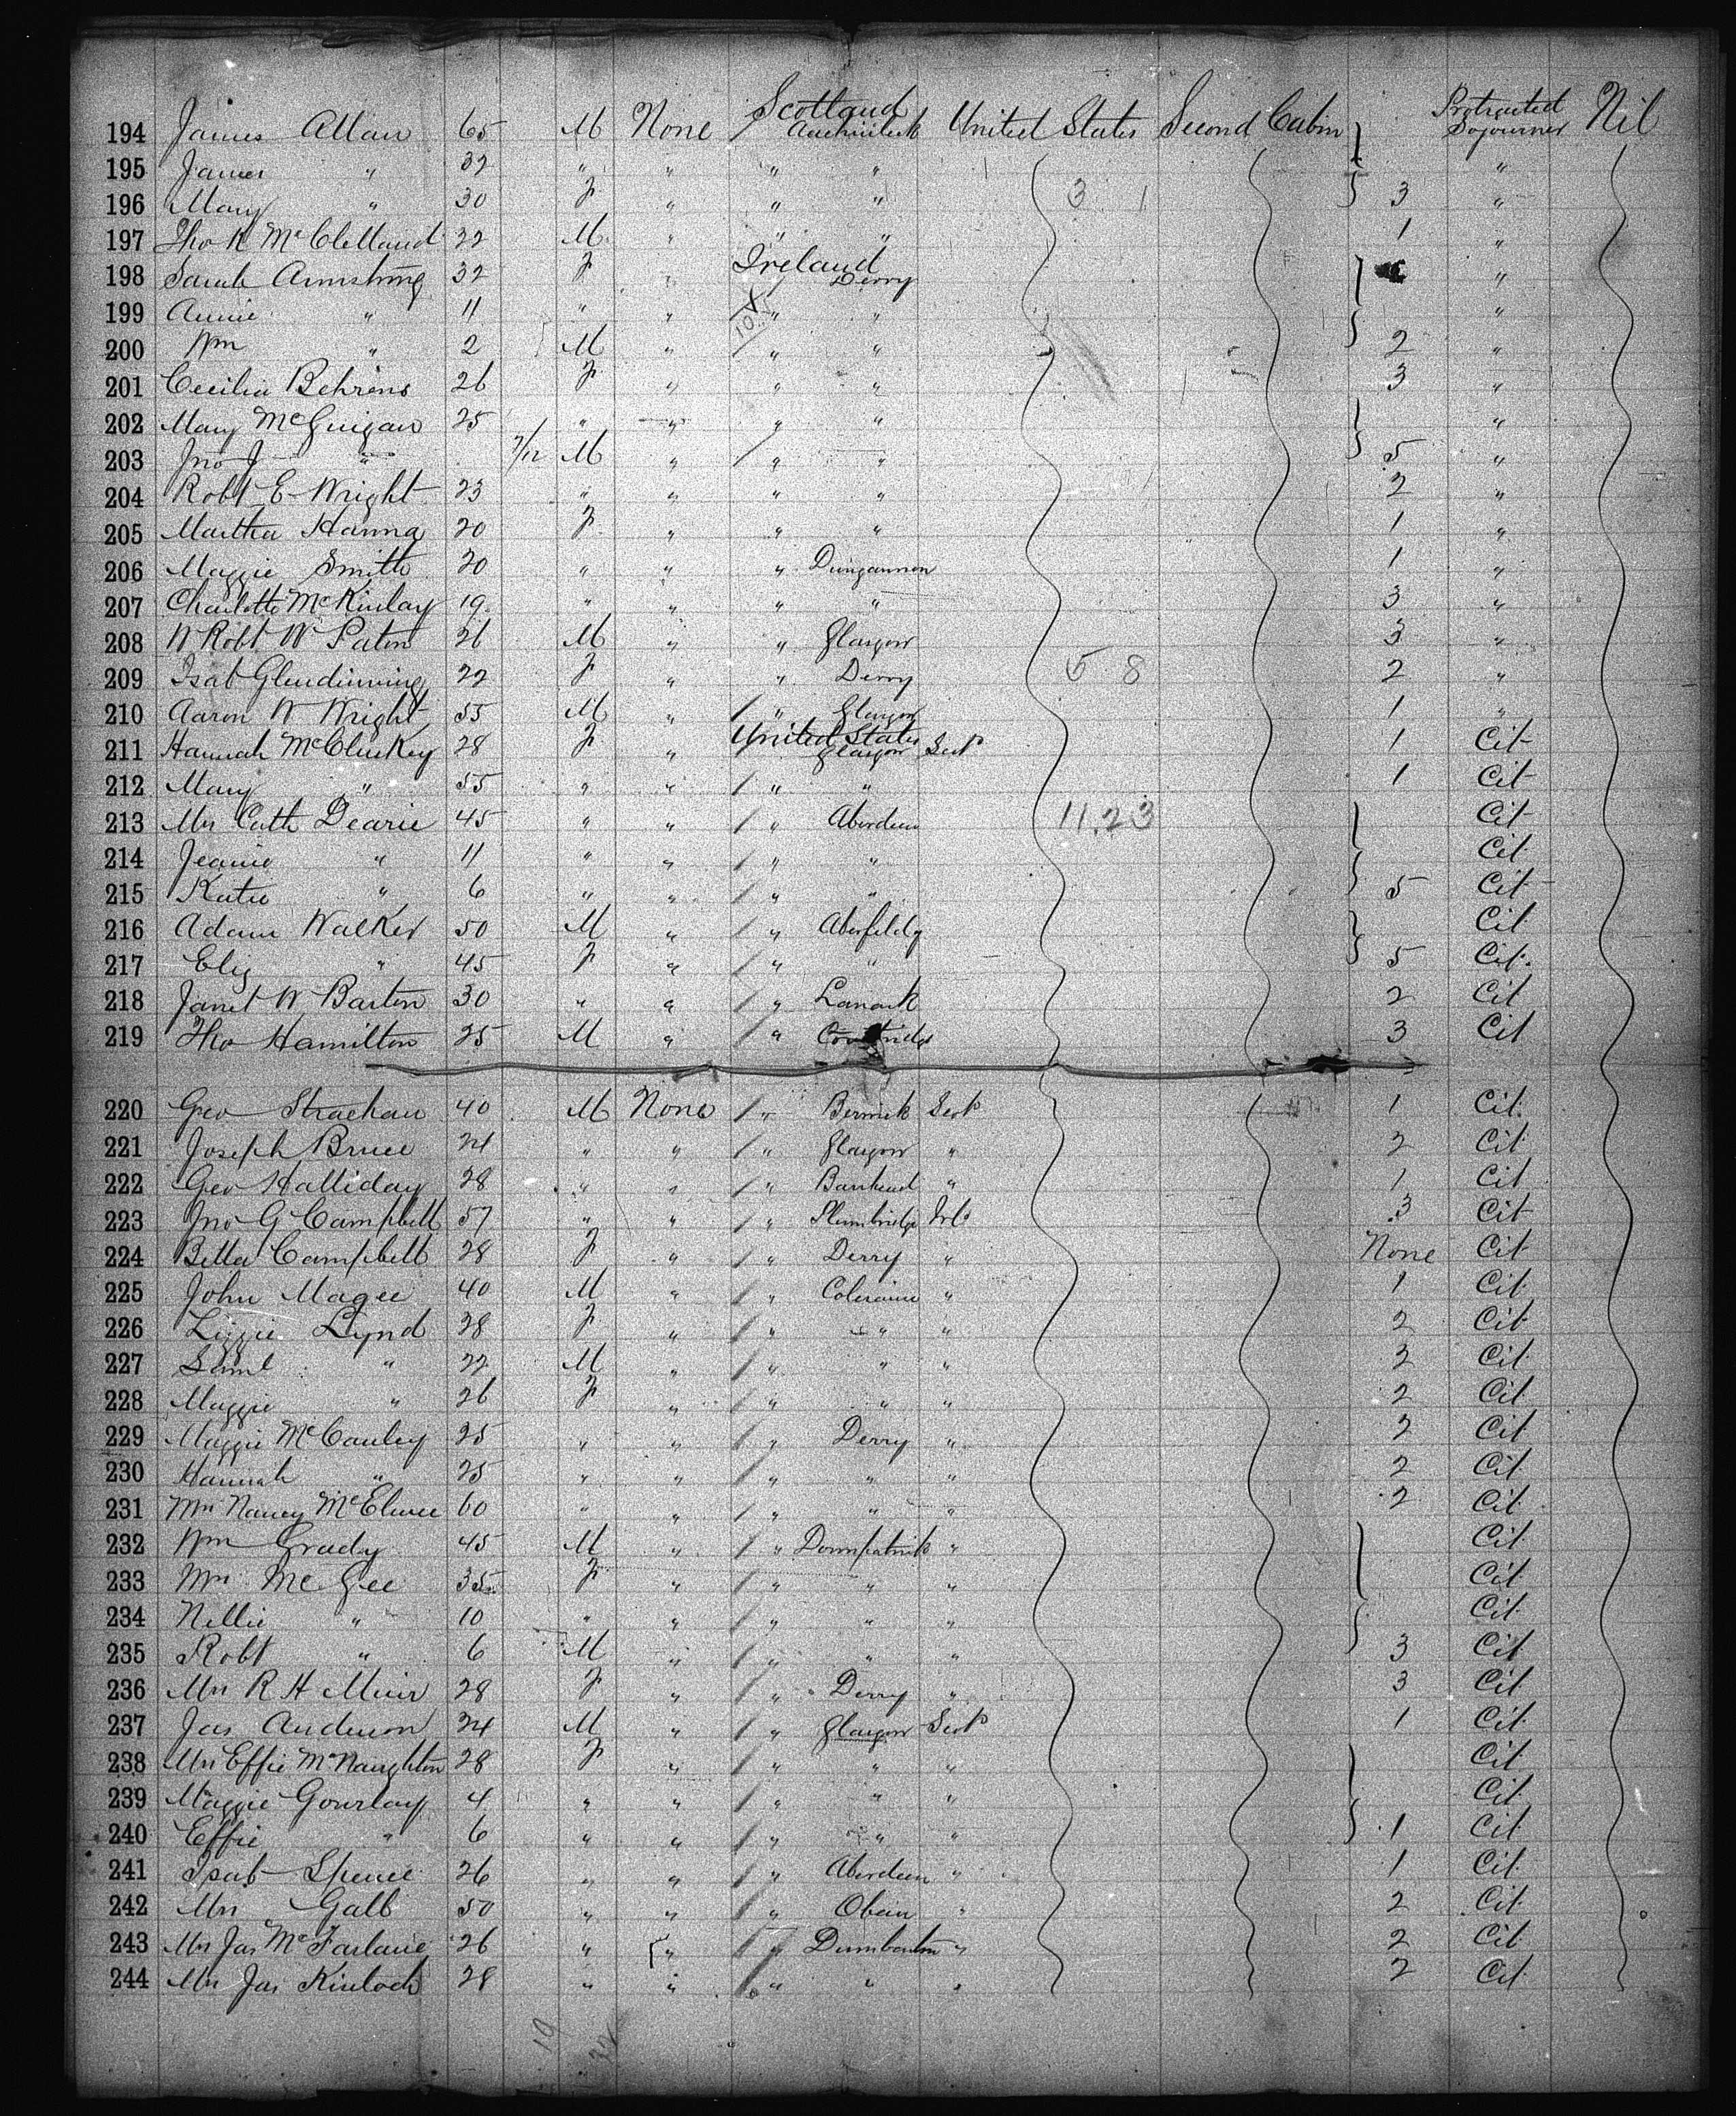 194 James Allan 65 M None Scotland Auchinleck United States Second Cabin Protracted Sojourner Nil
195 James " 32 " " " " "
196 Mary " 30 F " " " 3 1 3 "
197 Tho K McClelland 22 M " " " 1 "
198 Sarah Armstrong 32 F " Ireland Derry "
199 Annie " 11 " " " " "
200 Wm " 2 M " 10X " " 2 "
201 Cecilia Behrens 26 F " " " 3 "
202 Mary McGuigan 25 " " " " "
203 Jno J " 7/12 M " " " 5 "
204 Robt E Wright 23 " " " " 2 "
205 Martha Hanna 20 F " " " 1 "
206 Maggie Smith 20 " " " Dungannon 1 "
207 Charlotte McKinlay 19 " " " " 3 "
208 W Robt W Paton 26 M " " Glasgow 3 "
209 Isab Glendinning 22 F " " Derry 5 8 2 "
210 Aaron W Wright 55 M " " Glasgow 1 "
211 Hannah McCluskey 28 F " United States Glasgow Scot 1 Cit
212 Mary " 55 " " " " 1 Cit
213 Mrs Cath Dearie 45 " " " Aberdeen 11.23 Cit
214 Jeanie " 11 " " " " Cit
215 Katie " 6 " " " " 5 Cit
216 Adam Walker 50 M " " Aberfeldy Cit
217 Eliz " 45 F " " " 5 Cit.
218 Janet W Barton 30 " " " Lanark 2 Cit
219 Tho Hamilton 25 M " " 3 Cit
220 Geo Strachan 40 M None " Berwick Scot 1 Cit.
221 Joseph Bruce 24 " " " Glasgow " 2 Cit
222 Geo Halliday 28 " " " Barrhead " 1 Cit
223 Jno G Campbell 57 " " " Plumbridge Irl 3 Cit
224 Bella Campbell 28 F " " Derry " None Cit
225 John Magee 40 M " " Coleraine " 1 Cit
226 Lizzie Lynd 28 F " " " " 2 Cit
227 Saml " 22 M " " " " 2 Cit
228 Maggie " 26 F " " " " 2 Cit
229 Maggie McCauley 25 " " " Derry " 2 Cit
230 Hannah " 25 " " " " " 2 Cit
231 Mrs Nancy McElwee 60 " " " " " 2 Cit
232 Wm Grady 45 M " " Downpatrick " Cit
233 Mrs McGee 35 F " " " " Cit
234 Nellie " 10 " " " " " Cit
235 Robt " 6 M " " " " 3 Cit
236 Mrs R H Muir 28 F " " Derry " 3 Cit
237 Jas Anderson 24 M " " Glasgow Scot 1 Cit
238 Mrs Effie McNaughton 28 F " " " " Cit
239 Maggie Gourlay 4 " " " " " Cit
240 Effie " 6 " " " " " 1 Cit
241 Isab Spence 26 " " " Aberdeen " 1 Cit
242 Mrs Galb 50 " " " Oban " 2 Cit
243 Mrs Jas McFarlane 26 " " " Dumbarton " 2 Cit
244 Mrs Jas Kinloch 28 " " " " " 2 Cit
19